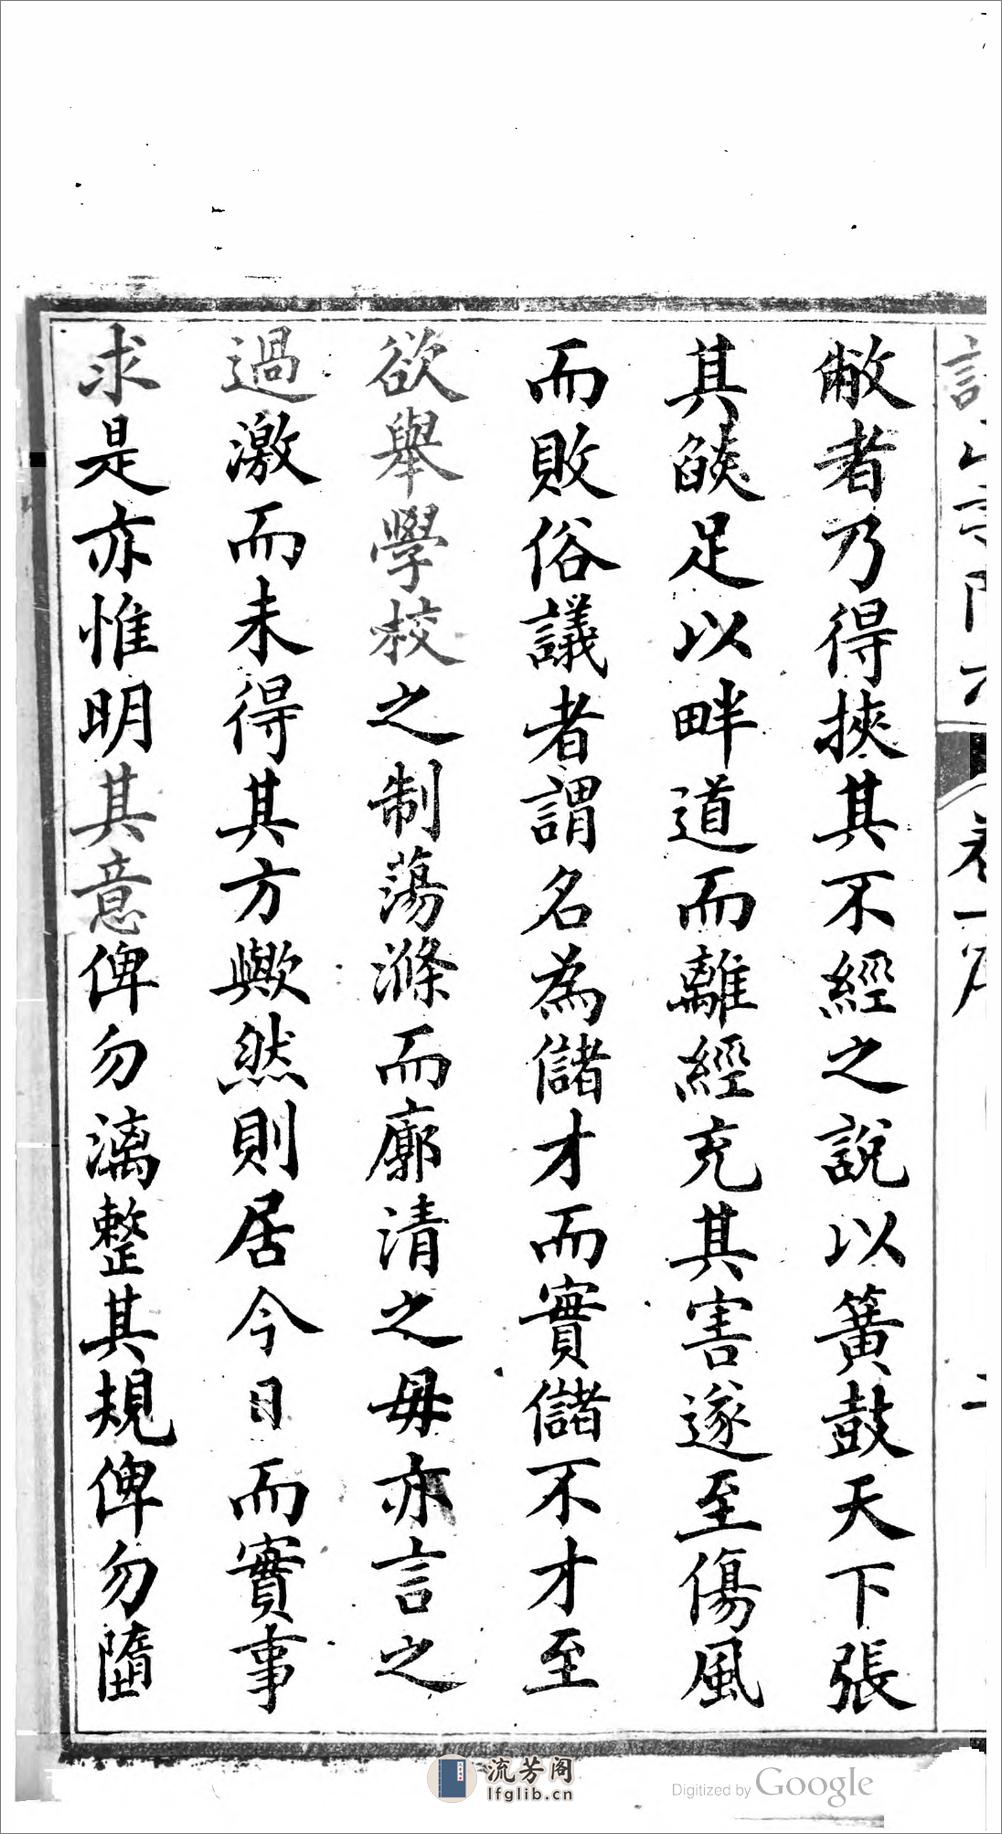 敝者乃得挾其不經之說以簧鼓天下張
其燄足以畔道而離經充其害遂至傷風
而敗俗議者謂名為儲才而實儲不才至
欲舉學校之制蕩滌而廓清之毋亦言之
過激而未得其方歟然則居今日而實事
求是亦惟明其意俾勿漓整其規俾勿隳
流芳阁
lfglib.cn
Digitized by Google